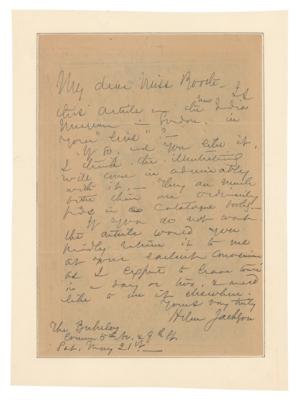 My dear Miss Booth - Is
this article on the new India
Museum in London in
your "line"? -
If so and you like it,
I think the illustrations
will come in admirably
with it. - They are much
better than are ordinarily
in a catalogue
If you do not want
the article would you
kindly return it to me
at your earliest convenience
as I expect to leave town
in a day or two, & would
like to use it elsewhere.
Yours very truly
Helen Jackson
The Berkeley
Corner 5th Av. & 9th St.
Sat. May 21st